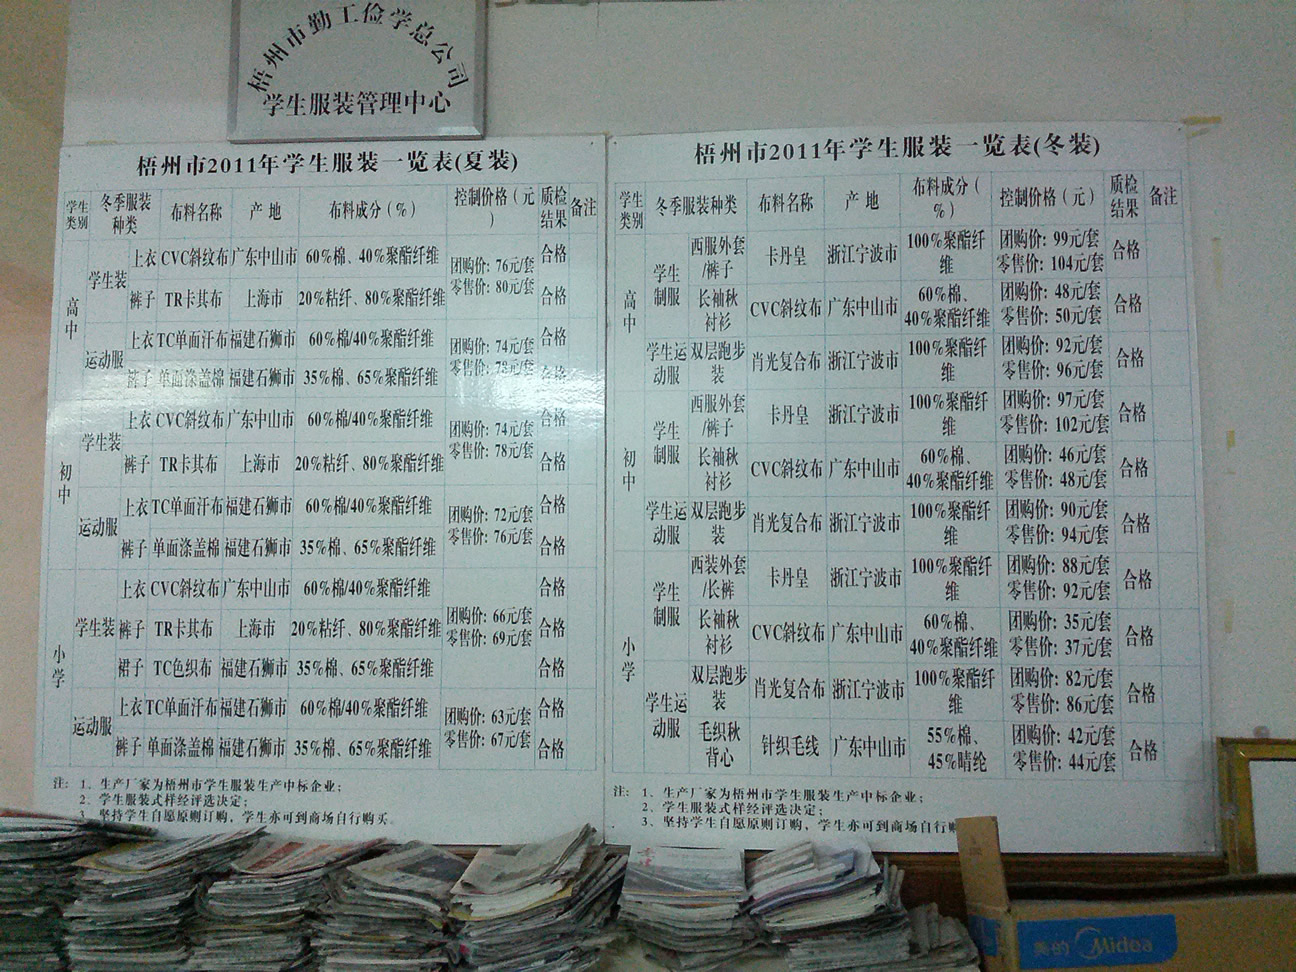 梧州市勤工俭学总公司
学生服装管理中心
梧州市2011年学生服装一览表(夏装)
学生类别 冬季服装种类 布料名称 产地 布料成分（%） 控制价格（元） 质检结果 备注
高中 学生装 上衣 CVC斜纹布 广东中山市 60%棉、40%聚酯纤维 团购价: 76元/套 零售价: 80元/套 合格
裤子 TR卡其布 上海市 20%粘纤、80%聚酯纤维 合格
运动服 上衣 TC单面汗布 福建石狮市 60%棉/40%聚酯纤维 团购价: 74元/套 零售价: 78元/套 合格
裤子 单面涤盖棉 福建石狮市 35%棉、65%聚酯纤维 合格
初中 学生装 上衣 CVC斜纹布 广东中山市 60%棉/40%聚酯纤维 团购价: 74元/套 零售价: 78元/套 合格
裤子 TR卡其布 上海市 20%粘纤、80%聚酯纤维 合格
运动服 上衣 TC单面汗布 福建石狮市 60%棉/40%聚酯纤维 团购价: 72元/套 零售价: 76元/套 合格
裤子 单面涤盖棉 福建石狮市 35%棉、65%聚酯纤维 合格
小学 学生装 上衣 CVC斜纹布 广东中山市 60%棉/40%聚酯纤维 团购价: 66元/套 零售价: 69元/套 合格
裤子 TR卡其布 上海市 20%粘纤、80%聚酯纤维 合格
裙子 TC色织布 福建石狮市 35%棉、65%聚酯纤维 合格
运动服 上衣 TC单面汗布 福建石狮市 60%棉/40%聚酯纤维 团购价: 63元/套 零售价: 67元/套 合格
裤子 单面涤盖棉 福建石狮市 35%棉、65%聚酯纤维 合格
注: 1、生产厂家为梧州市学生服装生产中标企业;
2、学生服装式样经评选决定;
3、坚持学生自愿原则订购，学生亦可到商场自行购买。
梧州市2011年学生服装一览表(冬装)
学生类别 冬季服装种类 布料名称 产地 布料成分（%） 控制价格（元） 质检结果 备注
高中 学生制服 西服外套/裤子 卡丹皇 浙江宁波市 100%聚酯纤维 团购价: 99元/套 零售价: 104元/套 合格
长袖秋衬衫 CVC斜纹布 广东中山市 60%棉、40%聚酯纤维 团购价: 48元/套 零售价: 50元/套 合格
学生运动服 双层跑步装 肖光复合布 浙江宁波市 100%聚酯纤维 团购价: 92元/套 零售价: 96元/套 合格
初中 学生制服 西服外套/裤子 卡丹皇 浙江宁波市 100%聚酯纤维 团购价: 97元/套 零售价: 102元/套 合格
长袖秋衬衫 CVC斜纹布 广东中山市 60%棉、40%聚酯纤维 团购价: 46元/套 零售价: 48元/套 合格
学生运动服 双层跑步装 肖光复合布 浙江宁波市 100%聚酯纤维 团购价: 90元/套 零售价: 94元/套 合格
小学 学生制服 西装外套/长裤 卡丹皇 浙江宁波市 100%聚酯纤维 团购价: 88元/套 零售价: 92元/套 合格
长袖秋衬衫 CVC斜纹布 广东中山市 60%棉、40%聚酯纤维 团购价: 35元/套 零售价: 37元/套 合格
学生运动服 双层跑步装 肖光复合布 浙江宁波市 100%聚酯纤维 团购价: 82元/套 零售价: 86元/套 合格
毛织秋背心 针织毛线 广东中山市 55%棉、45%晴纶 团购价: 42元/套 零售价: 44元/套 合格
注: 1、生产厂家为梧州市学生服装生产中标企业;
2、学生服装式样经评选决定;
3、坚持学生自愿原则订购，学生亦可到商场自行购
美的 Midea